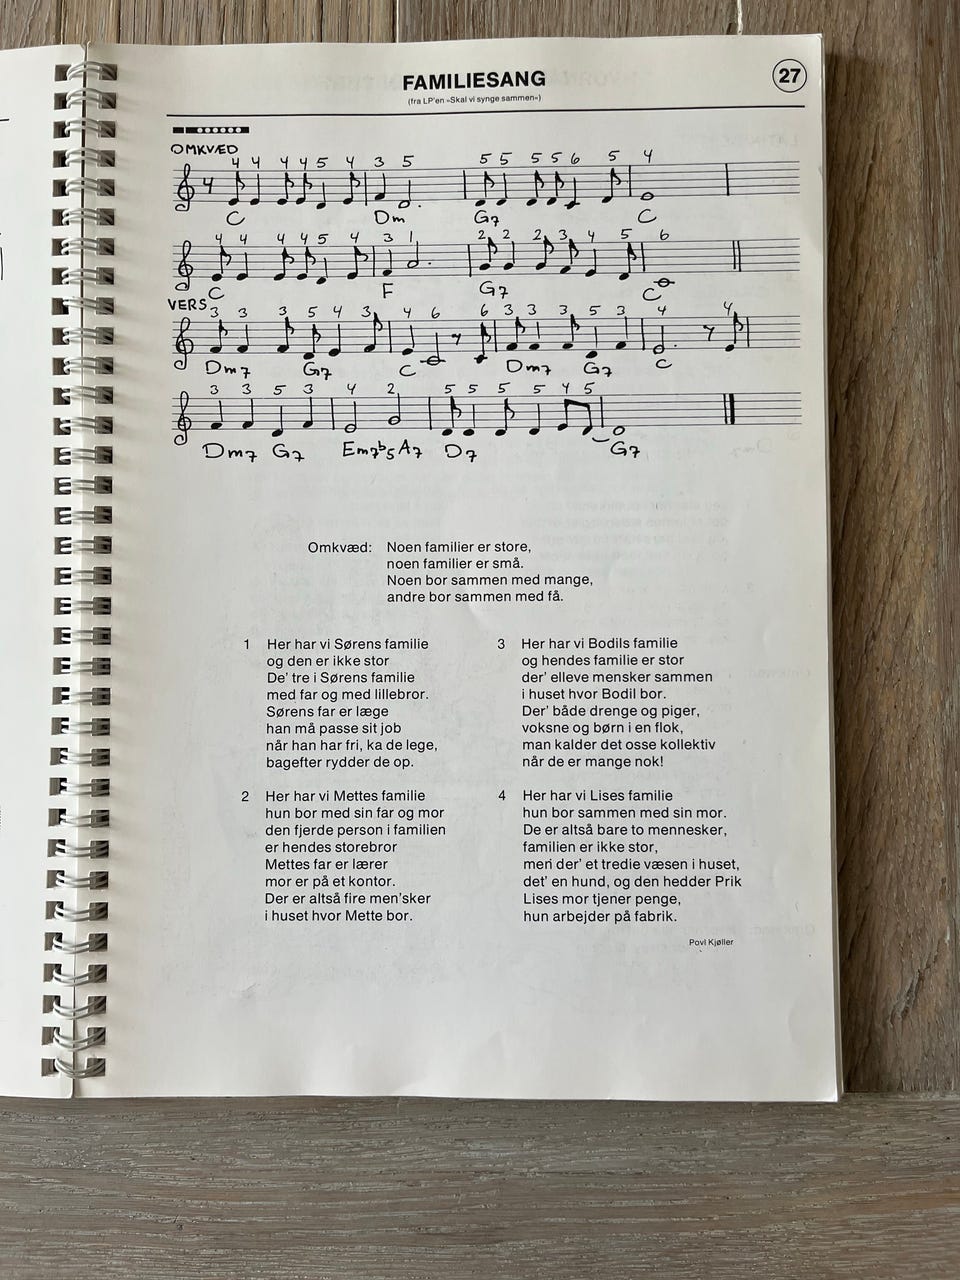 FAMILIESANG
(fra LP'en »Skal vi synge sammen«)
27
OMKVÆD
4 4 4 4 5 4 3 5 5 5 5 5 6 5 4
4
C Dm G7 C
4 4 4 4 5 4 3 1 2 2 2 3 4 5 6
C F G7 C
VERS
3 3 3 5 4 3 4 6 6 3 3 3 5 3 4 4
Dm7 G7 C Dm7 G7 C
3 3 5 3 4 2 5 5 5 5 4 5
Dm7 G7 Em7b5 A7 D7 G7
Omkvæd: Noen familier er store,
noen familier er små.
Noen bor sammen med mange,
andre bor sammen med få.
1 Her har vi Sørens familie
og den er ikke stor
De' tre i Sørens familie
med far og med lillebror.
Sørens far er læge
han må passe sit job
når han har fri, ka de lege,
bagefter rydder de op.
2 Her har vi Mettes familie
hun bor med sin far og mor
den fjerde person i familien
er hendes storebror
Mettes far er lærer
mor er på et kontor.
Der er altså fire men'sker
i huset hvor Mette bor.
3 Her har vi Bodils familie
og hendes familie er stor
der' elleve mensker sammen
i huset hvor Bodil bor.
Der' både drenge og piger,
voksne og børn i en flok,
man kalder det osse kollektiv
når de er mange nok!
4 Her har vi Lises familie
hun bor sammen med sin mor.
De er altså bare to mennesker,
familien er ikke stor,
men der' et tredie væsen i huset,
det' en hund, og den hedder Prik
Lises mor tjener penge,
hun arbejder på fabrik.
Povl Kjøller